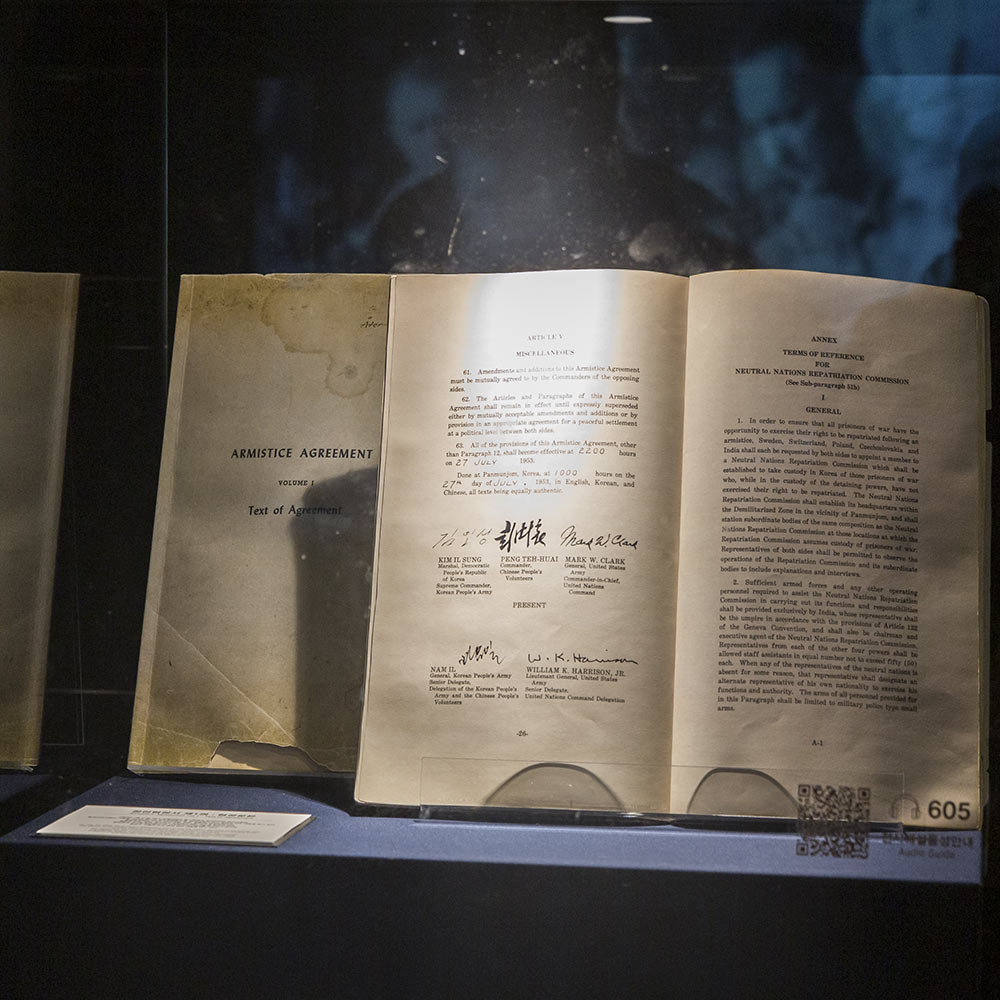 ARMISTICE AGREEMENT
VOLUME I
Text of Agreement
ARTICLE V
MISCELLANEOUS
61. Amendments and additions to this Armistice Agreement
must be mutually agreed to by the Commanders of the opposing
sides.
62. The Articles and Paragraphs of this Armistice
Agreement shall remain in effect until expressly superseded
either by mutually acceptable amendments and additions or by
provision in an appropriate agreement for a peaceful settlement
at a political level between both sides.
63. All of the provisions of this Armistice Agreement, other
than Paragraph 12, shall become effective at 2200 hours
on 27 JULY 1953.
Done at Panmunjom, Korea, at 1000 hours on the
27th day of JULY, 1953, in English, Korean, and
Chinese, all texts being equally authentic.
김일성 彭德懷 Mark W. Clark
KIM IL SUNG PENG TEH-HUAI MARK W. CLARK
Marshal, Democratic Commander, General, United States
People's Republic Chinese People's Army
of Korea Volunteers Commander-in-Chief,
Supreme Commander, United Nations
Korean People's Army Command
PRESENT
남일 W. K. Harrison
NAM IL WILLIAM K. HARRISON, JR.
General, Korean People's Army Lieutenant General, United States
Senior Delegate, Army
Delegation of the Korean People's Senior Delegate,
Army and the Chinese People's United Nations Command Delegation
Volunteers
-26-
ANNEX
TERMS OF REFERENCE
FOR
NEUTRAL NATIONS REPATRIATION COMMISSION
(See Sub-paragraph 51b)
I
GENERAL
1. In order to ensure that all prisoners of war have the
opportunity to exercise their right to be repatriated following an
armistice, Sweden, Switzerland, Poland, Czechoslovakia and
India shall each be requested by both sides to appoint a member to
a Neutral Nations Repatriation Commission which shall be
established to take custody in Korea of those prisoners of war
who, while in the custody of the detaining powers, have not
exercised their right to be repatriated. The Neutral Nations
Repatriation Commission shall establish its headquarters within
the Demilitarized Zone in the vicinity of Panmunjom, and shall
station subordinate bodies of the same composition as the Neutral
Nations Repatriation Commission at those locations at which the
Repatriation Commission assumes custody of prisoners of war.
Representatives of both sides shall be permitted to observe the
operations of the Repatriation Commission and its subordinate
bodies to include explanations and interviews.
2. Sufficient armed forces and any other operating
personnel required to assist the Neutral Nations Repatriation
Commission in carrying out its functions and responsibilities
shall be provided exclusively by India, whose representative shall
be the umpire in accordance with the provisions of Article 132
of the Geneva Convention, and shall also be chairman and
executive agent of the Neutral Nations Repatriation Commission.
Representatives from each of the other four powers shall be
allowed staff assistants in equal number not to exceed fifty (50)
each. When any of the representatives of the neutral nations is
absent for some reason, that representative shall designate an
alternate representative of his own nationality to exercise his
functions and authority. The arms of all personnel provided for
in this Paragraph shall be limited to military police type small
arms.
A-1
605
Audio Guide